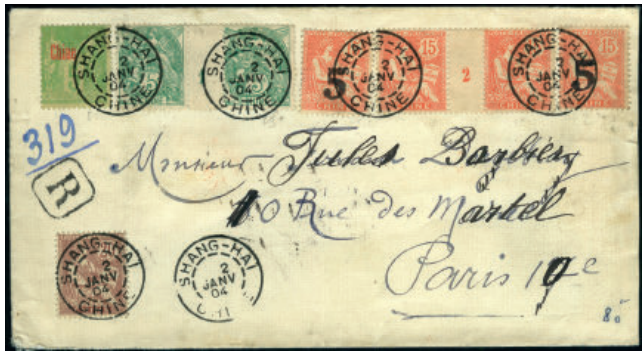 Chine
SHANG-HAI 2 JANV 04 CHINE
SHANG-HAI 2 JANV 04 CHINE
5
15
SHANG-HAI 2 JANV 04 CHINE
15
2
15
SHANG-HAI 2 JANV 04 CHINE
5
15
319
R
Monsieur Jules Barbier
10 Rue des Martel
Paris 10e
SHANG-HAI 2 JANV 04 CHINE
SHANG-HAI 2 JANV 04 CHINE